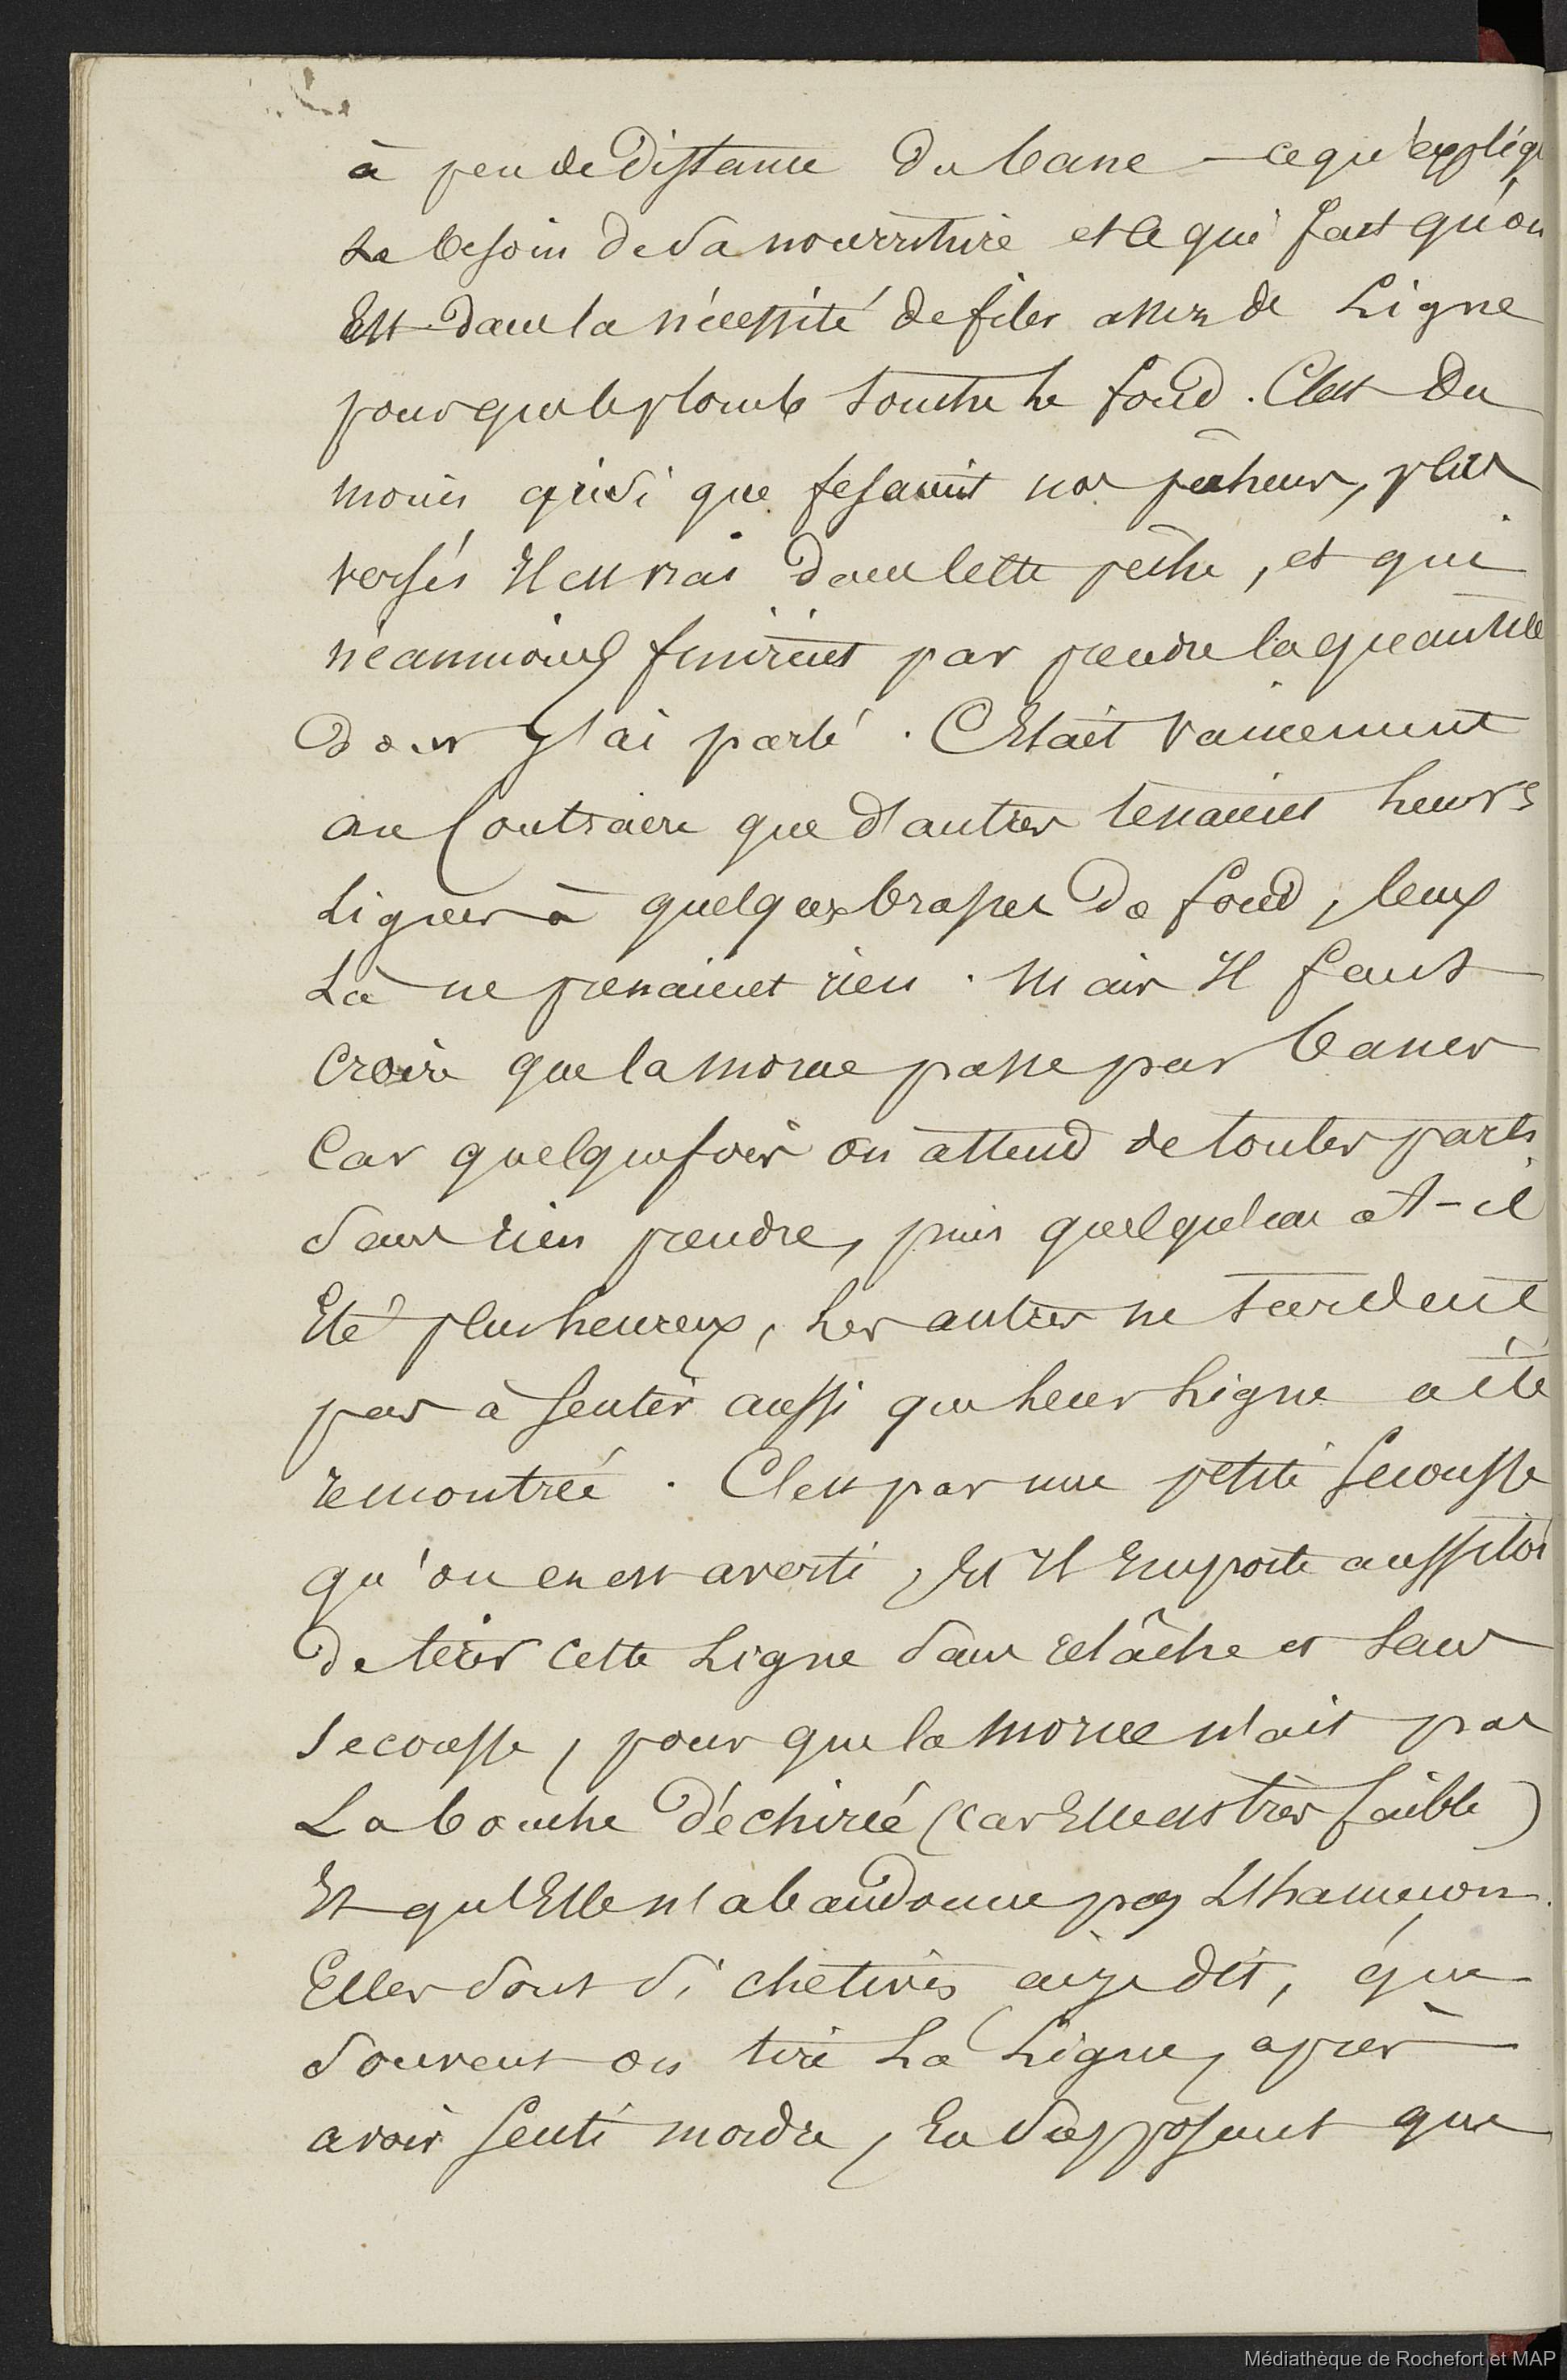 à peu de distance du banc – ce qu'expliqu
Le besoin de sa nourriture et ce qui fait qu'on
Est dans la nécessité de filer assez de Ligne
pour que le plomb touche le fond. C'est du
moins ainsi que fesaient nos pêcheurs, plus
versés Il est vrai dans cette pêche, et qui
néanmoins finirent par prendre la quantité
dont j'ai parlé. C'était vainement
au Contraire que d'autres tenaient leurs
Lignes à quelques brasses de fond, ceux
Là ne prenaient rien. Mais Il faut
Croire que la morue passe par bancs
Car quelquefois on attend de toutes parts
sans rien prendre, puis quelqu'un at-il
Eté plus heureux, Les autres ne tardent
pas à sentir aussi que leur Ligne a été
remontrée. C'est par une petite secousse
qu'on en est averti, Et Il Emporte aussitôt
de tirer cette Ligne sans relâche et sans
secousse, pour que la morue n'ait pas
La bouche déchirée (car Elle est très faible)
Et qu'Elle n'abandonne pas L'hameçon.
Elles sont si chetives ai-je dit, que
souvent on tire La Ligne, après
avoir senti mordre, En supposant que
Médiathèque de Rochefort et MAP